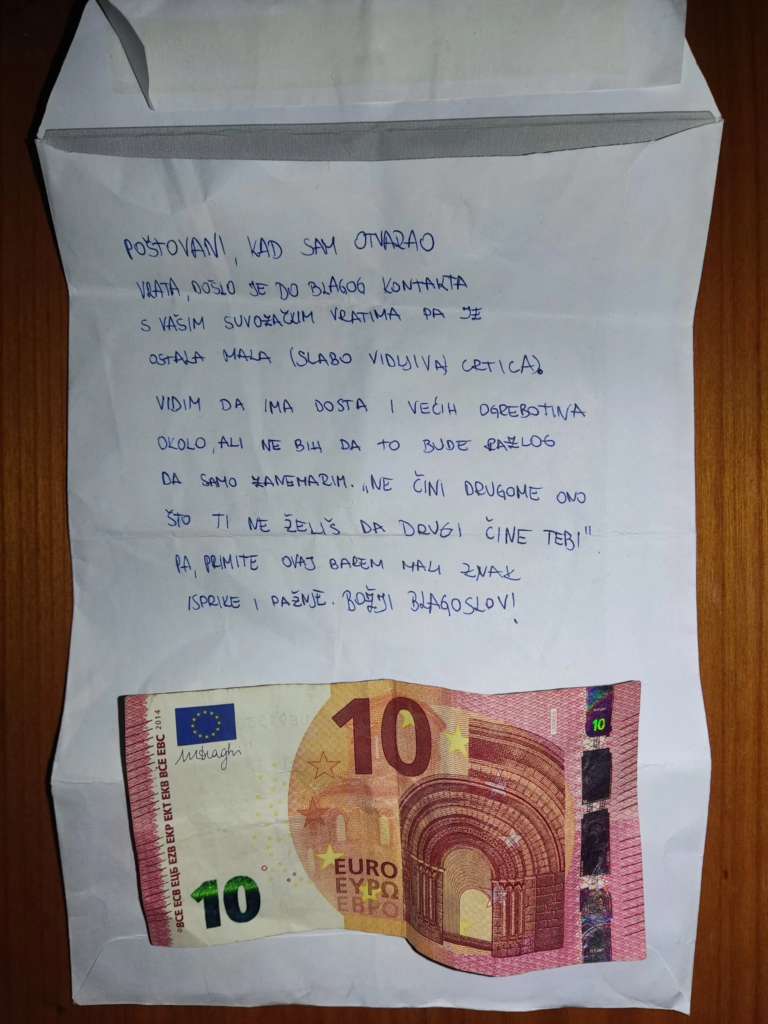 POŠTOVANI, KAD SAM OTVARAO
VRATA, DOŠLO JE DO BLAGOG KONTAKTA
S VAŠIM SUVOZAČKIM VRATIMA PA JE
OSTALA MALA (SLABO VIDLJIVA) CRTICA).
VIDIM DA IMA DOSTA I VEĆIH OGREBOTINA
OKOLO, ALI NE BIH DA TO BUDE RAZLOG
DA SAMO ZANEMARIM. „NE ČINI DRUGOME ONO
ŠTO TI NE ŽELIŠ DA DRUGI ČINE TEBI"
PA, PRIMITE OVAJ BAREM MALI ZNAK
ISPRIKE I PAŽNJE. BOŽJI BLAGOSLOV!
10
10
©BCE ECB ЕЦБ EZB EKP EKT EKB BĊE EBC 2014
10
EURO
ΕΥΡΩ
ЕВРО